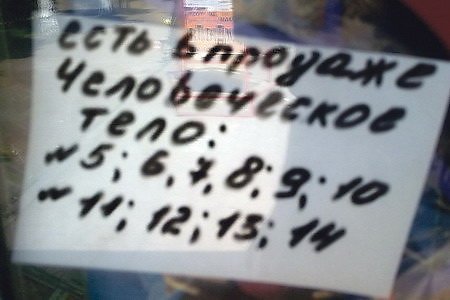 есть в продаже
Человеческое
тело:
№ 5; 6, 7, 8; 9; 10
№ 11; 12; 13; 14